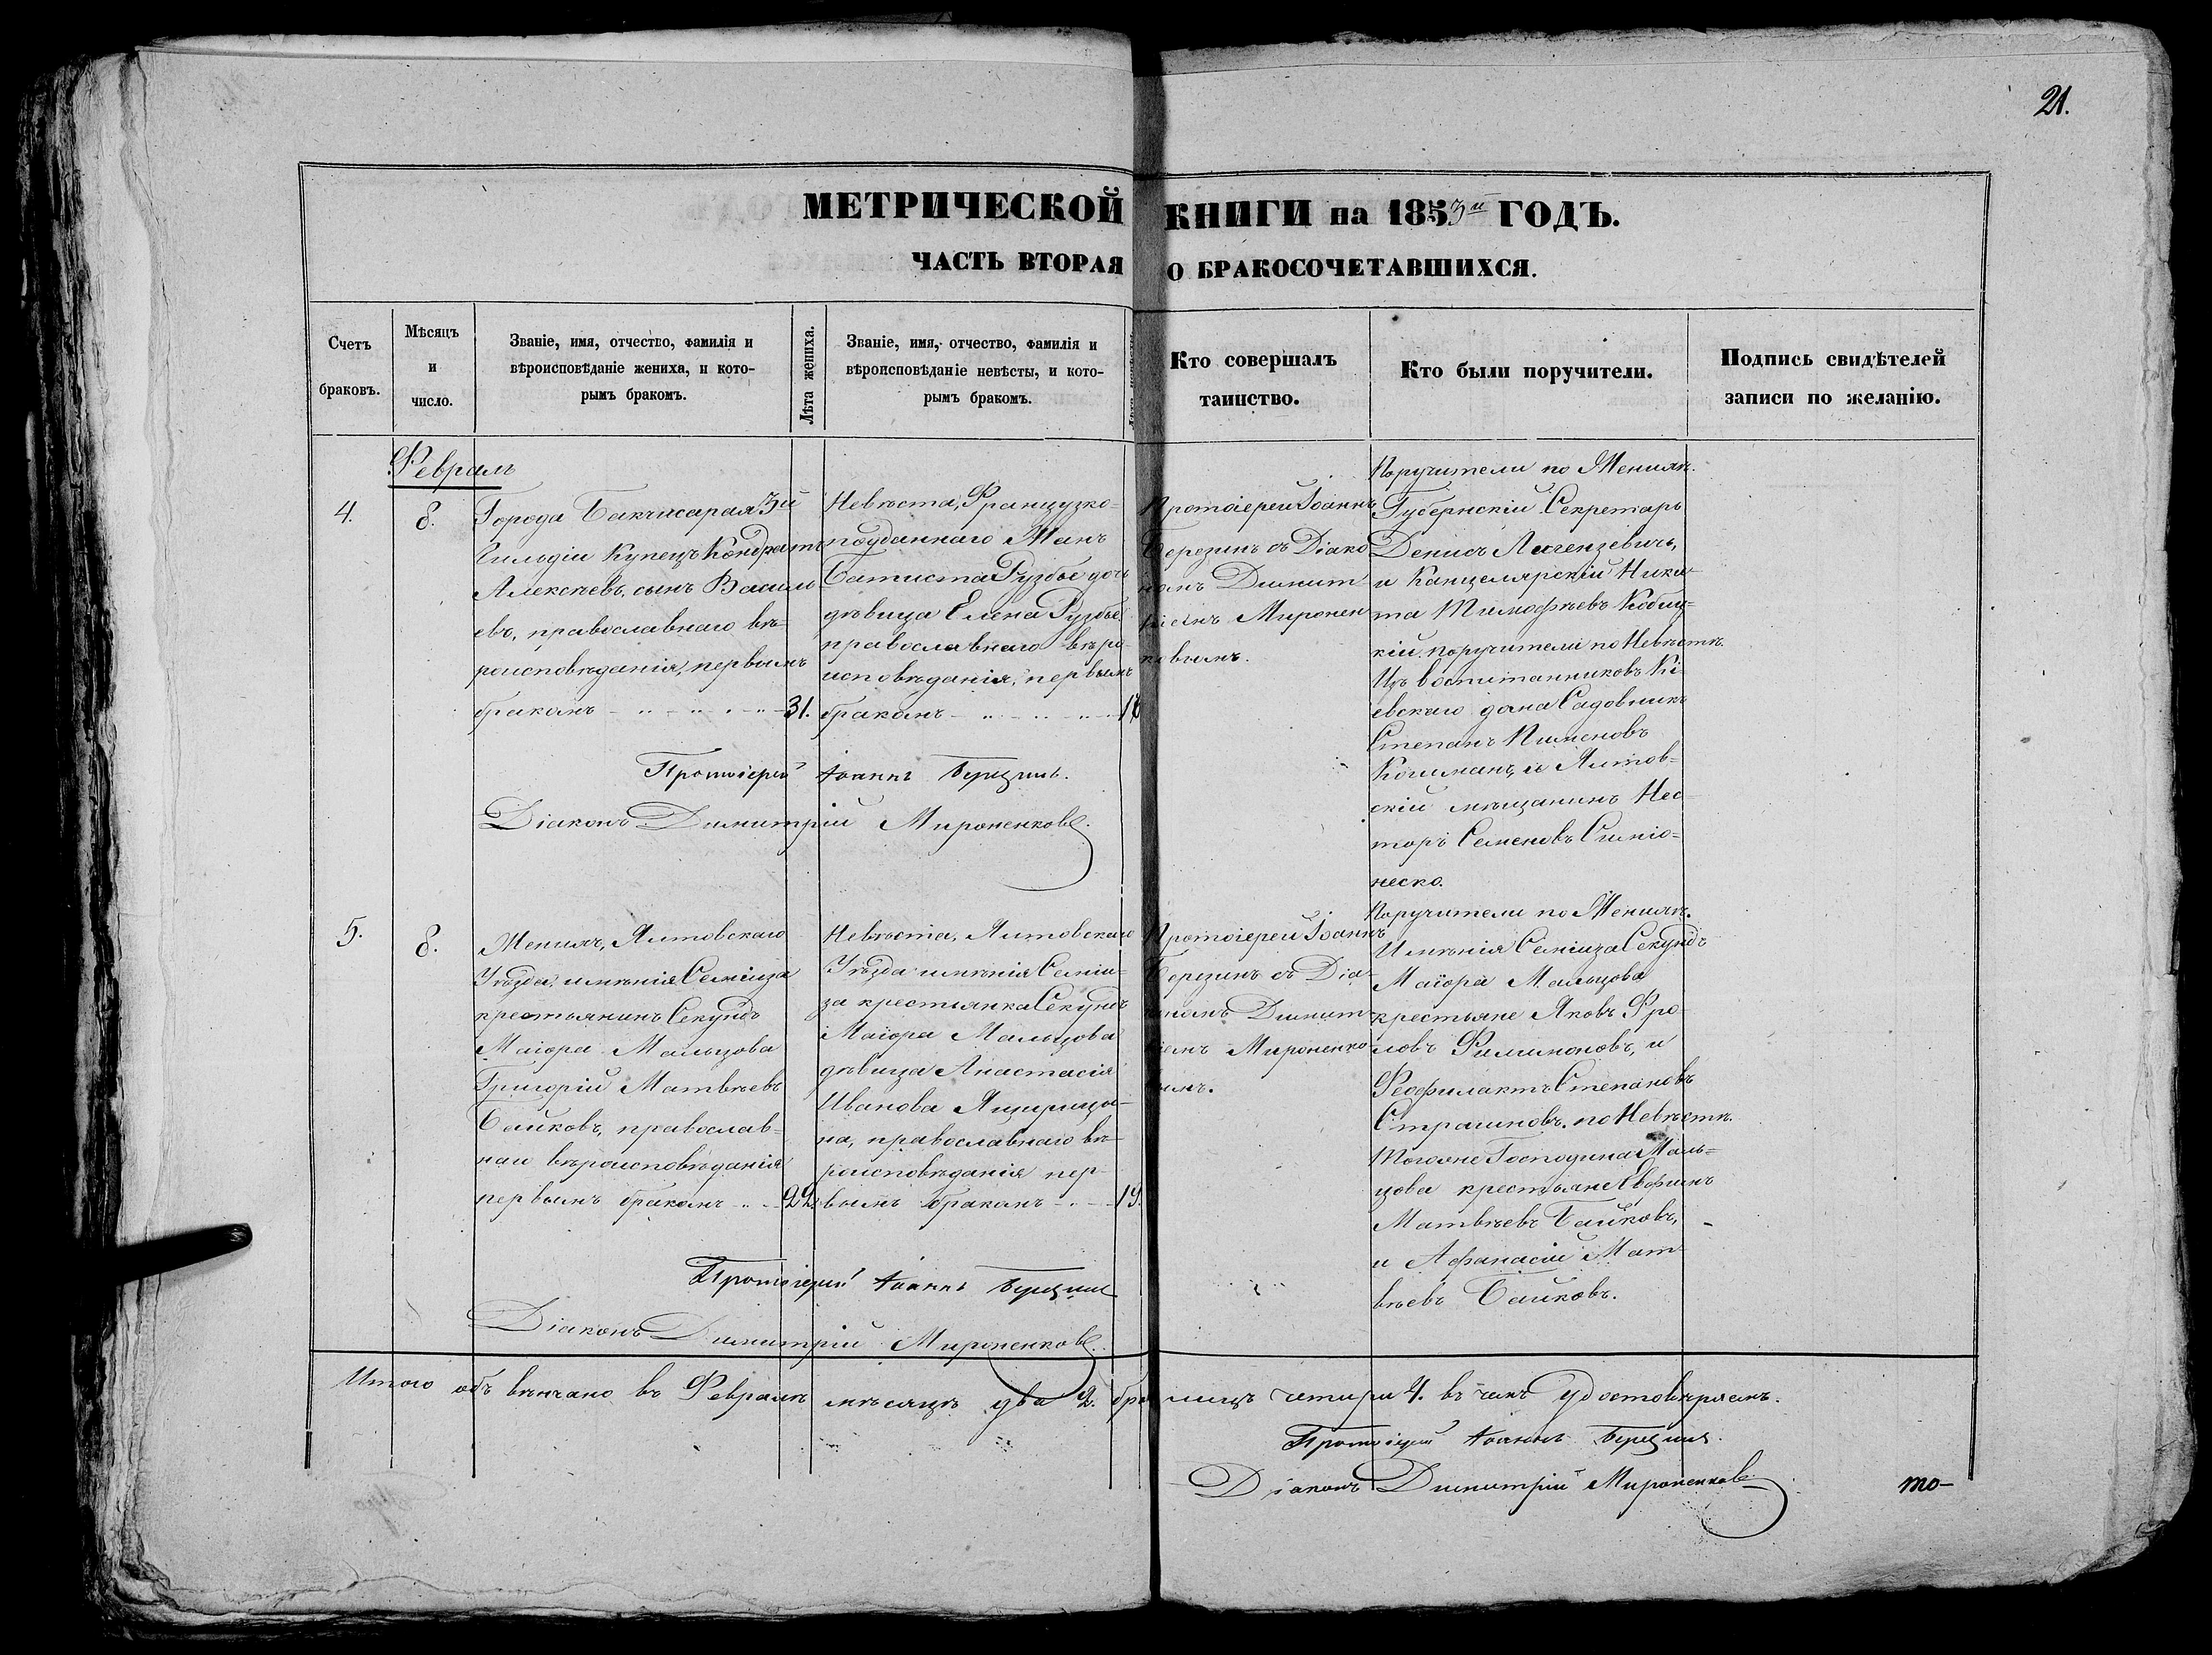 21.
МЕТРИЧЕСКОЙ КНИГИ на 1853й ГОДЪ.
ЧАСТЬ ВТОРАЯ О БРАКОСОЧЕТАВШИХСЯ.
Счетъ
браковъ.
Мѣсяцъ
и
число.
Званіе, имя, отчество, фамилія и
вѣроисповѣданіе жениха, и кото-
рымъ бракомъ.
Лѣта жениха.
Званіе, имя, отчество, фамилія и
вѣроисповѣданіе невѣсты, и кото-
рымъ бракомъ.
Кто совершалъ
таинство.
Кто были поручители.
Подпись свидѣтелей
записи по желанію.
Февраль
4.
8.
Города Бакчисарая 3й
Гильдіи Купецъ Кондратъ
Алексѣевъ, сынъ Василь-
евъ, православнаго вѣ-
роисповѣданія, первымъ
бракомъ 31.
Невѣста, Французко-
подданнаго Жанъ
Батиста Рузбье дочь
дѣвица Елена Рузбье
православнаго вѣро-
исповѣданія, первымъ
бракомъ
Протоіерей Іоаннъ
Березинъ съ Діако
номъ Димит-
ріемъ Миронен
ковымъ.
Поручители по Женихѣ.
Губернскій Секретарь
Денисъ
и Канцелярскій Ники-
та Тимофѣевъ
кій. поручители по Невѣстѣ.
Изъ воспитанниковъ Кі-
евскаго дома Садовникъ
Степанъ Пименовъ
и Ялтов-
скій мѣщанинъ Нес-
торъ Семеновъ Симіо-
неско.
Протоіерей Іоаннъ Березинъ.
Діаконъ Димитрій Мироненковъ.
5.
8.
Женихъ, Ялтовскаго
Уѣзда, имѣнія Семіиза
крестьянинъ Секундъ
Маіора Мальцова
Григорій Матвѣевъ
Байковъ, православ-
наго вѣроисповѣданія
первымъ бракомъ 22.
Невѣста, Ялтовскаго
Уѣзда имѣнія Семіи-
за крестьянка Секундъ
Маіора Мальцова
дѣвица Анастасія
Иванова
на, православнаго вѣ-
роисповѣданія пер-
вымъ бракомъ 19.
Протоіерей Іоаннъ
Березинъ съ Діа-
кономъ Димит-
ріемъ Мироненко-
вымъ.
Поручители по Женихѣ.
Имѣнія Семіиза Секундъ
Маіора Мальцова
крестьяне Яковъ Фро-
ловъ Филимоновъ, и
Феофилактъ Степановъ
Страшновъ. по Невѣстѣ.
Тогоже Господина Маль-
цова крестьяне Евфимъ
Матвѣевъ Байковъ,
и Афанасій Мат-
вѣевъ Байковъ.
Протоіерей Іоаннъ Березинъ
Діаконъ Димитрій Мироненковъ.
Итого обвѣнчано въ Февралѣ мѣсяцѣ два 2. лицъ четыри 4. въ чемъ удостовѣряемъ.
Протоіерей Іоаннъ Березинъ.
Діаконъ Димитрій Мироненковъ
то-